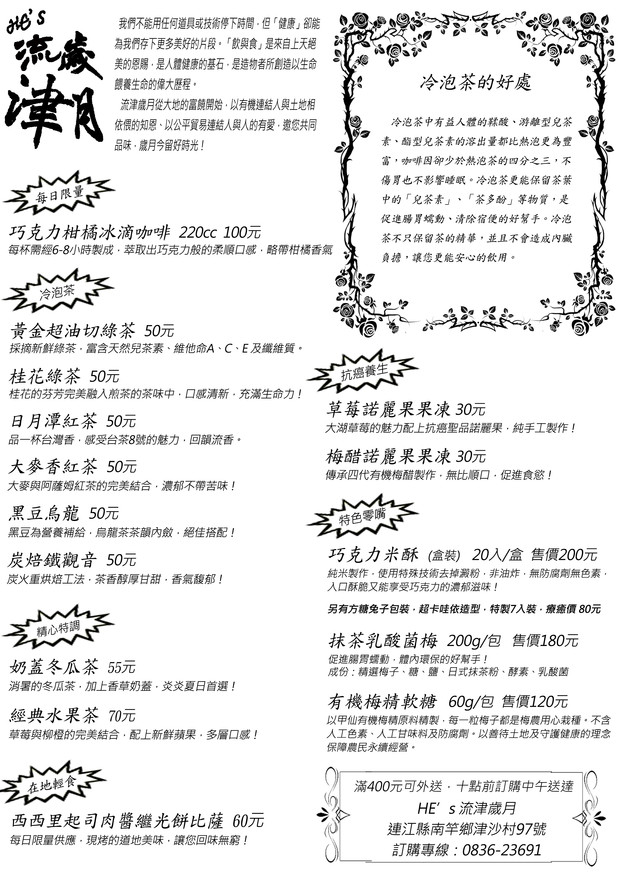 HE's
流津歲月
我們不能用任何道具或技術停下時間，但「健康」卻能
為我們存下更多美好的片段。「飲與食」是來自上天絕
美的恩賜，是人體健康的基石，是造物者所創造以生命
餵養生命的偉大歷程。
流津歲月從大地的富饒開始，以有機連結人與土地相
依偎的知恩、以公平貿易連結人與人的有愛，邀您共同
品味，歲月今留好時光！
每日限量
巧克力柑橘冰滴咖啡 220cc 100元
每杯需經6-8小時製成，萃取出巧克力般的柔順口感，略帶柑橘香氣
冷泡茶
黃金超油切綠茶 50元
採摘新鮮綠茶，富含天然兒茶素、維他命A、C、E 及纖維質。
桂花綠茶 50元
桂花的芬芳完美融入煎茶的茶味中，口感清新，充滿生命力！
日月潭紅茶 50元
品一杯台灣香，感受台茶8號的魅力，回韻流香。
大麥香紅茶 50元
大麥與阿薩姆紅茶的完美結合，濃郁不帶苦味！
黑豆烏龍 50元
黑豆為營養補給，烏龍茶茶韻內斂，絕佳搭配！
炭焙鐵觀音 50元
炭火重烘焙工法，茶香醇厚甘甜，香氣馥郁！
精心特調
奶蓋冬瓜茶 55元
消暑的冬瓜茶，加上香草奶蓋，炎炎夏日首選！
經典水果茶 70元
草莓與柳橙的完美結合，配上新鮮蘋果，多層口感！
在地輕食
西西里起司肉醬繼光餅比薩 60元
每日限量供應，現烤的道地美味，讓您回味無窮！
冷泡茶的好處
冷泡茶中有益人體的鞣酸、游離型兒茶
素、酯型兒茶素的溶出量都比熱泡更為豐
富，咖啡因卻少於熱泡茶的四分之三，不
傷胃也不影響睡眠。冷泡茶更能保留茶葉
中的「兒茶素」、「茶多酚」等物質，是
促進腸胃蠕動、清除宿便的好幫手。冷泡
茶不只保留茶的精華，並且不會造成內臟
負擔，讓您更能安心的飲用。
抗癌養生
草莓諾麗果果凍 30元
大湖草莓的魅力配上抗癌聖品諾麗果，純手工製作！
梅醋諾麗果果凍 30元
傳承四代有機梅醋製作，無比順口，促進食慾！
特色零嘴
巧克力米酥 (盒裝) 20入/盒 售價200元
純米製作，使用特殊技術去掉澱粉，非油炸，無防腐劑無色素，
人口酥脆又能享受巧克力的濃郁滋味！
另有方糖兔子包裝，超卡哇依造型，特製7入裝，療癒價 80元
抹茶乳酸菌梅 200g/包 售價180元
促進腸胃蠕動，體內環保的好幫手！
成份：精選梅子、糖、鹽、日式抹茶粉、酵素、乳酸菌
有機梅精軟糖 60g/包 售價120元
以甲仙有機梅精原料精製，每一粒梅子都是梅農用心栽種。不含
人工色素、人工甘味料及防腐劑。以善待土地及守護健康的理念
保障農民永續經營。
滿400元可外送，十點前訂購中午送達
HE's 流津歲月
連江縣南竿鄉津沙村97號
訂購專線：0836-23691